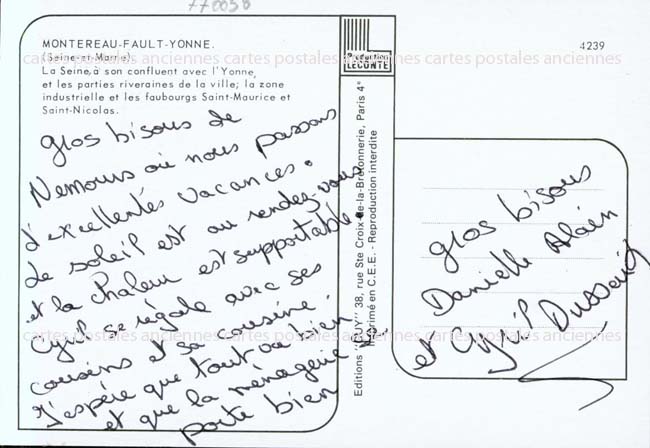 770038
MONTEREAU-FAULT-YONNE.
(Seine-et-Marne)
La Seine,à son confluent avec l'Yonne,
et les parties riveraines de la ville; la zone
industrielle et les faubourgs Saint-Maurice et
Saint-Nicolas.
Production
LECONTE
4239
Gros bisous de
Nemours où nous passons
d'excellentes vacances.
Le soleil est au rendez-vous
et la chaleur est supportable.
Cyril se régale avec ses
cousins et sa cousine.
J'espère que tout va bien
et que la ménagerie se
porte bien
Editions "GUY" 38, rue Ste Croix-de-la-Bretonnerie, Paris 4e
Imprimé en C.E.E. - Reproduction interdite
Gros bisous
Danielle Alain
et Cyril
cartes postales anciennes cartes postales anciennes cartes postales anciennes
cartes postales anciennes cartes postales anciennes cartes postales anciennes